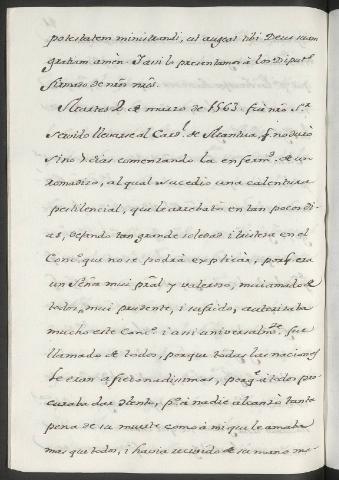 potestatem ministrandi, ut augeat tibi Deus suam
gratiam amèn. I asi lo presentamos à los Diput.s
firmado de nr̃o nõs.
Martes 2 de marzo de 1563 fuè nr̃o S.r
servido llevarse al Card.l de Mantua, q̃ no durò
sino 7 dias comenzando la enferm.d de un
romadizo, al qual sucedio una calentura
pestilencial, que le arrebatò en tan pocos di-
as, dejando tan grande soledad i tristeza en el
Conc.o que no se podrà explicar, porq̃ era
un Señor mui pral y valeroso, mui amado de
todos, mui prudente, i sufrido, autorizaba
mucho este Conc.o i asi universalm.te fue
llamado de todos, porque todas las naciones
le eran aficionadisimas, porq.e à todos pro-
curaba dar contento, p.o à nadie alcanzò tanta
pena de su muerte como à mi que le amaba
mas que todos, i havia recivido de su mano mu-